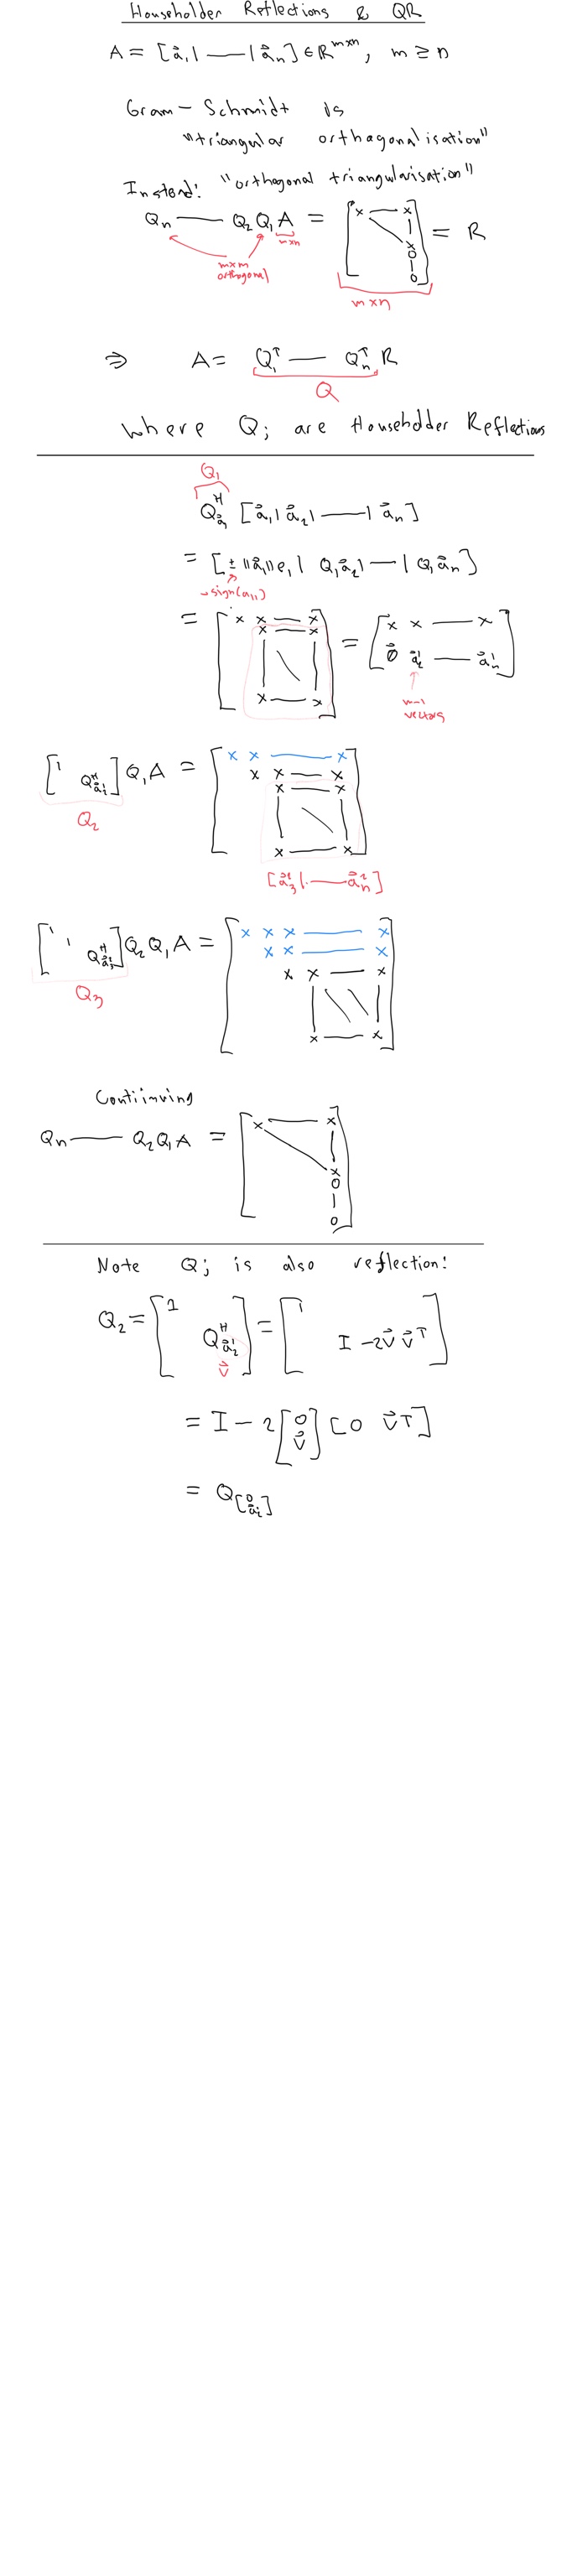 Householder Reflections & QR
A = [a⃗₁| — |a⃗ₙ] ∈ ℝ^{m×n}, m ≥ n
Gram-Schmidt is
"triangular orthogonalisation"
Instead: "orthogonal triangularisation"
Qₙ — Q₂ Q₁ A = [x — x \ | x 0 | 0] = R
m×n
m×m
orthogonal
m×n
⇒ A = Q₁ᵀ — Qₙᵀ R
Q
where Qⱼ are Householder Reflections
Q₁
Q^H_{a⃗₁} [a⃗₁| a⃗₂| — | a⃗ₙ]
= [± ‖a⃗₁‖e₁ | Q₁a⃗₂| — | Q₁a⃗ₙ]
-sign(a₁₁)
= [x x — x x — x | \ | x — x] = [x x — x 0⃗ a⃗₂¹ — a⃗ₙ¹]
m-1
vectors
[1 Q^H_{a⃗₂¹}] Q₁A = [x x — x x x — x x — x | \ | x — x]
Q₂
[a⃗₃²| — a⃗ₙ²]
[1 1 Q^H_{a⃗₃²}] Q₂Q₁A = [x x x — x x x — x x x — x | \ \ | x — x]
Q₃
Contiinuing
Qₙ — Q₂Q₁A = [x — x \ | x 0 | 0]
Note Qⱼ is also reflection!
Q₂ = [1 Q^H_{a⃗₂¹}] = [1 I - 2v⃗ v⃗ᵀ]
v⃗
= I - 2 [0 v⃗] [0 v⃗ᵀ]
= Q_{[0 a⃗₂¹]}